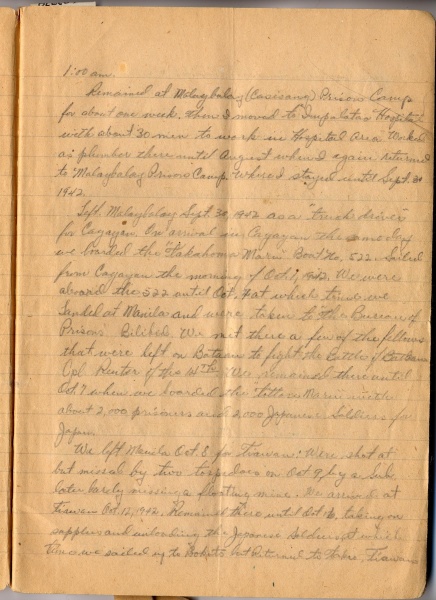 1:00 am.
Remained at Malaybalay (Casisang) Prison Camp
for about one week. Then I moved to Impalutao Hospital
with about 30 men to work in Hospital Area. Worked
as plumber there until August when I again returned
to Malaybalay Prison Camp where I stayed until Sept. 30
1942.
Left Malaybalay Sept. 30, 1942 as a "truck driver"
for Cagayan. On arrival in Cagayan the same day
we boarded the Maru" Boat No. 522. Sailed
from Cagayan the morning of Oct 1, 1942. We were
aboard the 522 until Oct. at which time we
landed at Manila and were taken to the Bureau of
Prisons Bilibid. We met there a few of the fellows
that were left on Bataan to fight the Battle of Bataan
Cpl. of the 14th. We remained there until
Oct. 7 when we boarded the Maru with
about 2,000 prisoners and 2,000 Japanese Soldiers for
Japan.
We left Manila Oct. 8 for Tiawan. Were shot at
but missed by two torpedoes on Oct 9, by a Sub.
later barely missing a floating mine. We arrived at
Tiawan Oct. 12, 1942. Remained there until Oct 16, taking on
supplies and unloading the Japanese Soldiers, at which
time we sailed up to but returned to Tiawan